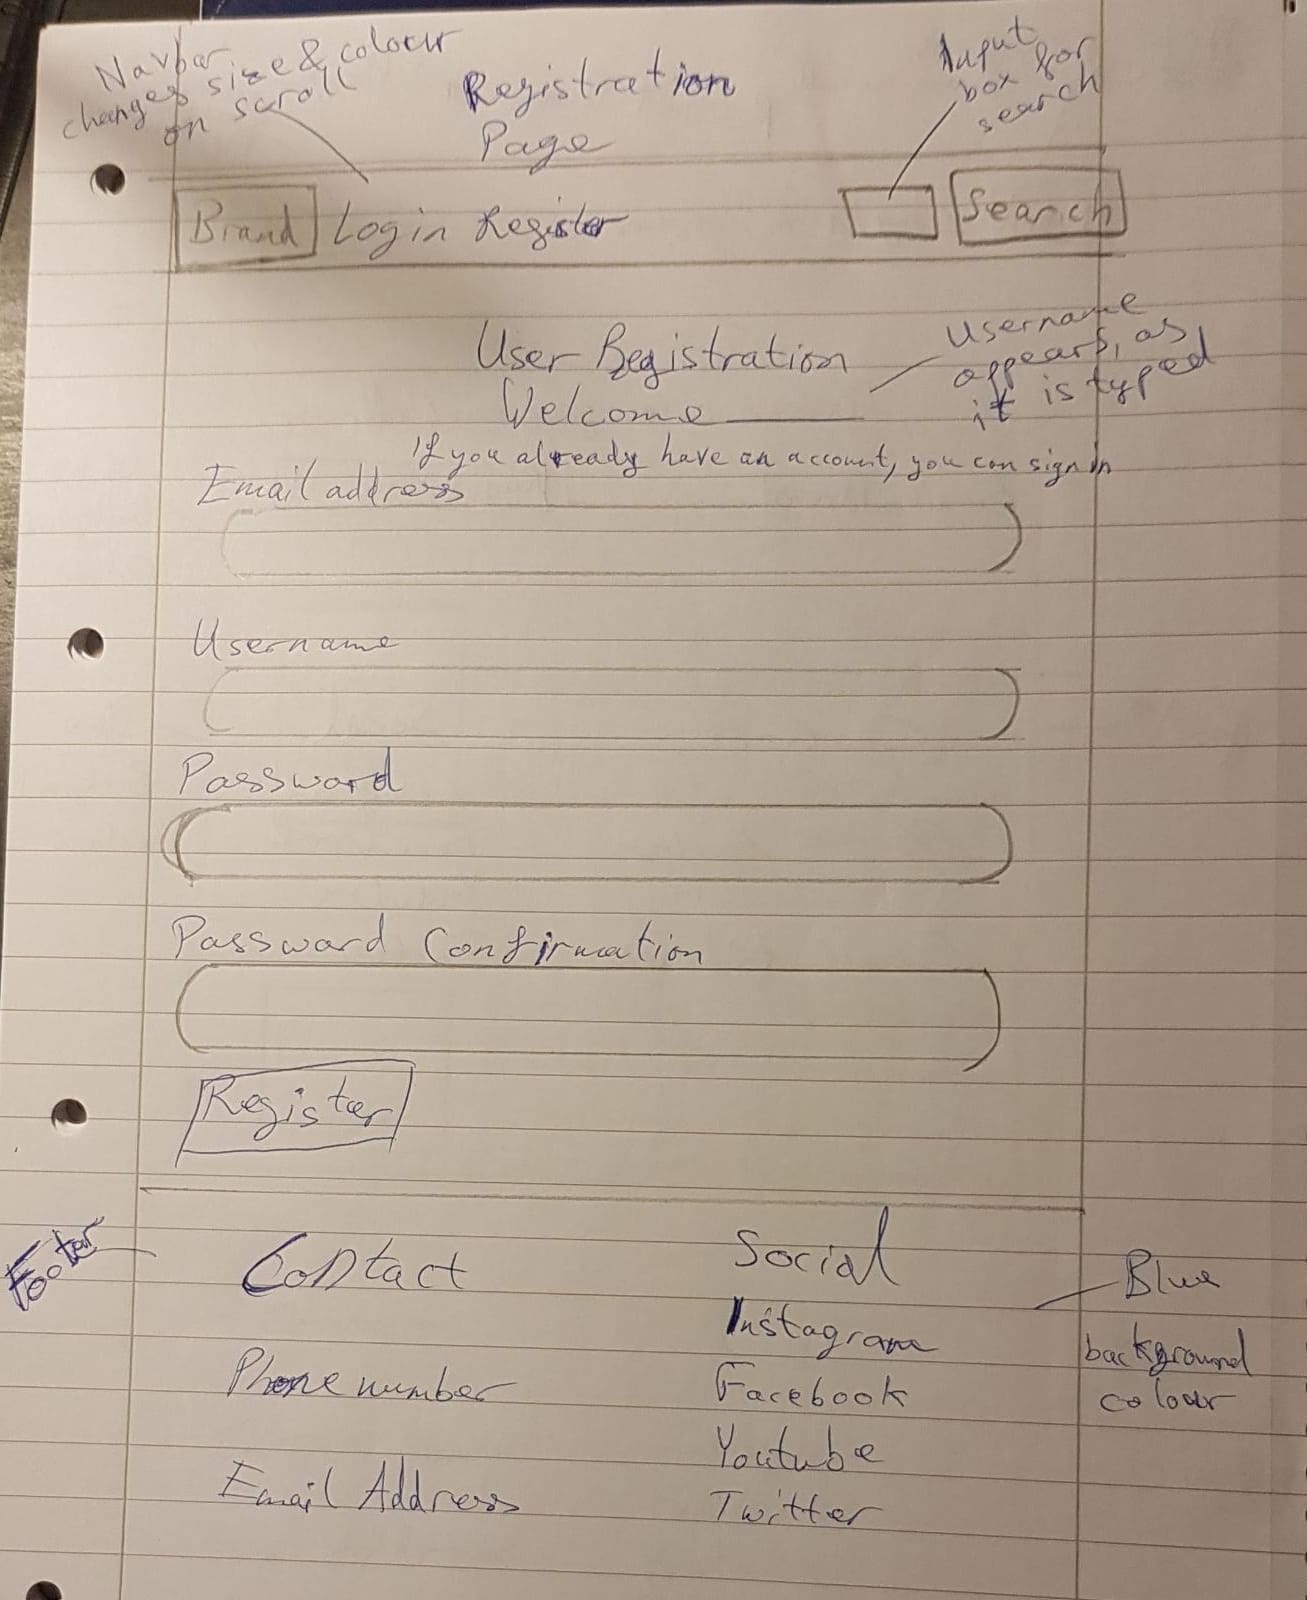 Navbar
changes size & colour
on scroll
Registration
Page
Input
box for
search
Brand Login Register Search
User Registration
Welcome
Username
appears, as
it is typed
If you already have an account, you can sign in
Email address
Username
Password
Password Confirmation
Register
Footer
Contact
Phone number
Email Address
Social
Instagram
Facebook
Youtube
Twitter
Blue
background
colour